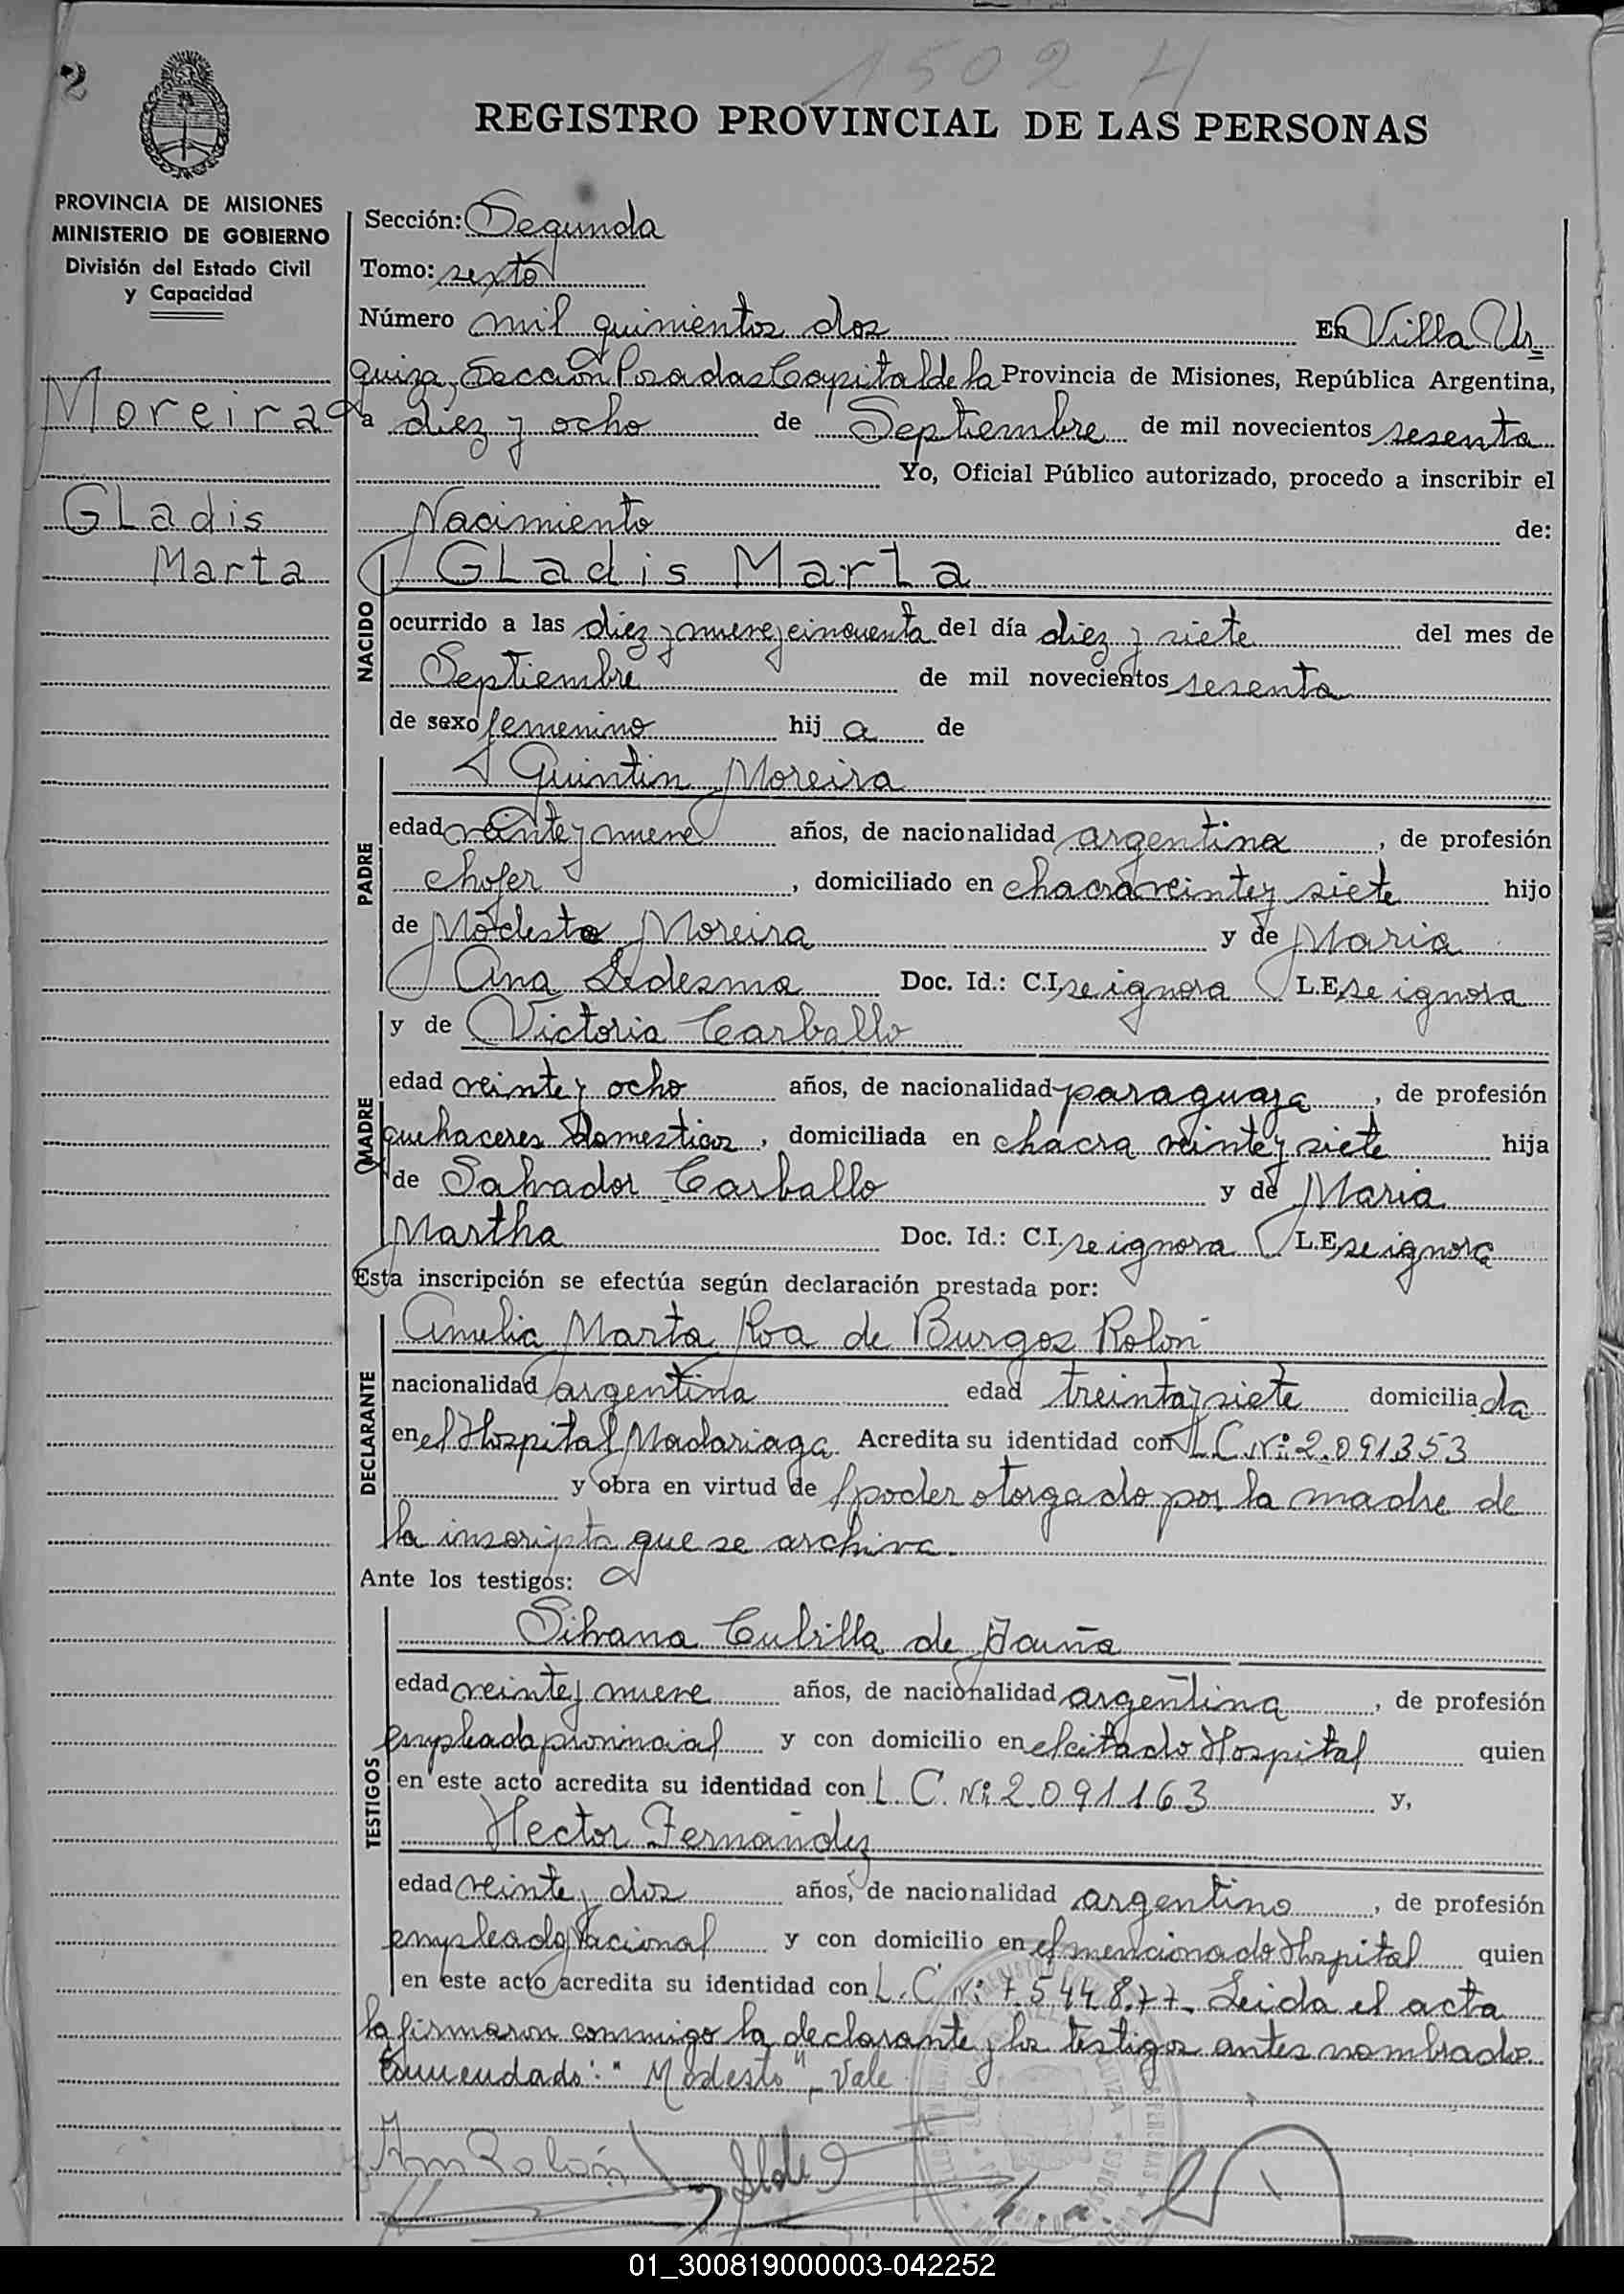 2
1502 H
REGISTRO PROVINCIAL DE LAS PERSONAS
PROVINCIA DE MISIONES
MINISTERIO DE GOBIERNO
División del Estado Civil
y Capacidad
Moreira
GLadis
Marta
Sección: Segunda
Tomo: sexto
Número mil quinientos dos En Villa Ur=
quiza, Sección Posadas Capital de la Provincia de Misiones, República Argentina,
a diez y ocho de Septiembre de mil novecientos sesenta
Yo, Oficial Público autorizado, procedo a inscribir el
Nacimiento de:
NACIDO
GLadis Marta
ocurrido a las diez y nueve y cincuenta del día diez y siete del mes de
Septiembre de mil novecientos sesenta
de sexo femenino hij a de
PADRE
Quintin Moreira
edad veinte y nueve años, de nacionalidad argentina, de profesión
chofer, domiciliado en chacra veinte y siete hijo
de Modesto Moreira y de Maria
Ana Ledesma Doc. Id.: C.I. se ignora L.E. se ignora
MADRE
y de Victoria Carballo
edad veinte y ocho años, de nacionalidad paraguaya, de profesión
quehaceres domesticos, domiciliada en chacra veinte y siete hija
de Salvador Carballo y de Maria
Martha Doc. Id.: C.I. se ignora L.E. se ignora
Esta inscripción se efectúa según declaración prestada por:
DECLARANTE
Amelia Marta Roa de Burgos Rolon
nacionalidad argentina edad treinta y siete domiciliada
en el Hospital Madariaga. Acredita su identidad con L.C. Nº: 2.091353
y obra en virtud de poder otorgado por la madre de
la inscripta que se archiva.
Ante los testigos:
TESTIGOS
Silvana Cubilla de Acuña
edad veinte y nueve años, de nacionalidad argentina, de profesión
empleada provincial y con domicilio en el citado Hospital quien
en este acto acredita su identidad con L.C. Nº: 2.091.163 y,
Hector Fernandez
edad veinte y dos años, de nacionalidad argentino, de profesión
empleado Nacional y con domicilio en el mencionado Hospital quien
en este acto acredita su identidad con L.C. Nº: 7.544.877. Leida el acta
la firmaron conmigo la declarante y los testigos antes nombrado
Enmendado: "Modesto", Vale
01_300819000003-042252